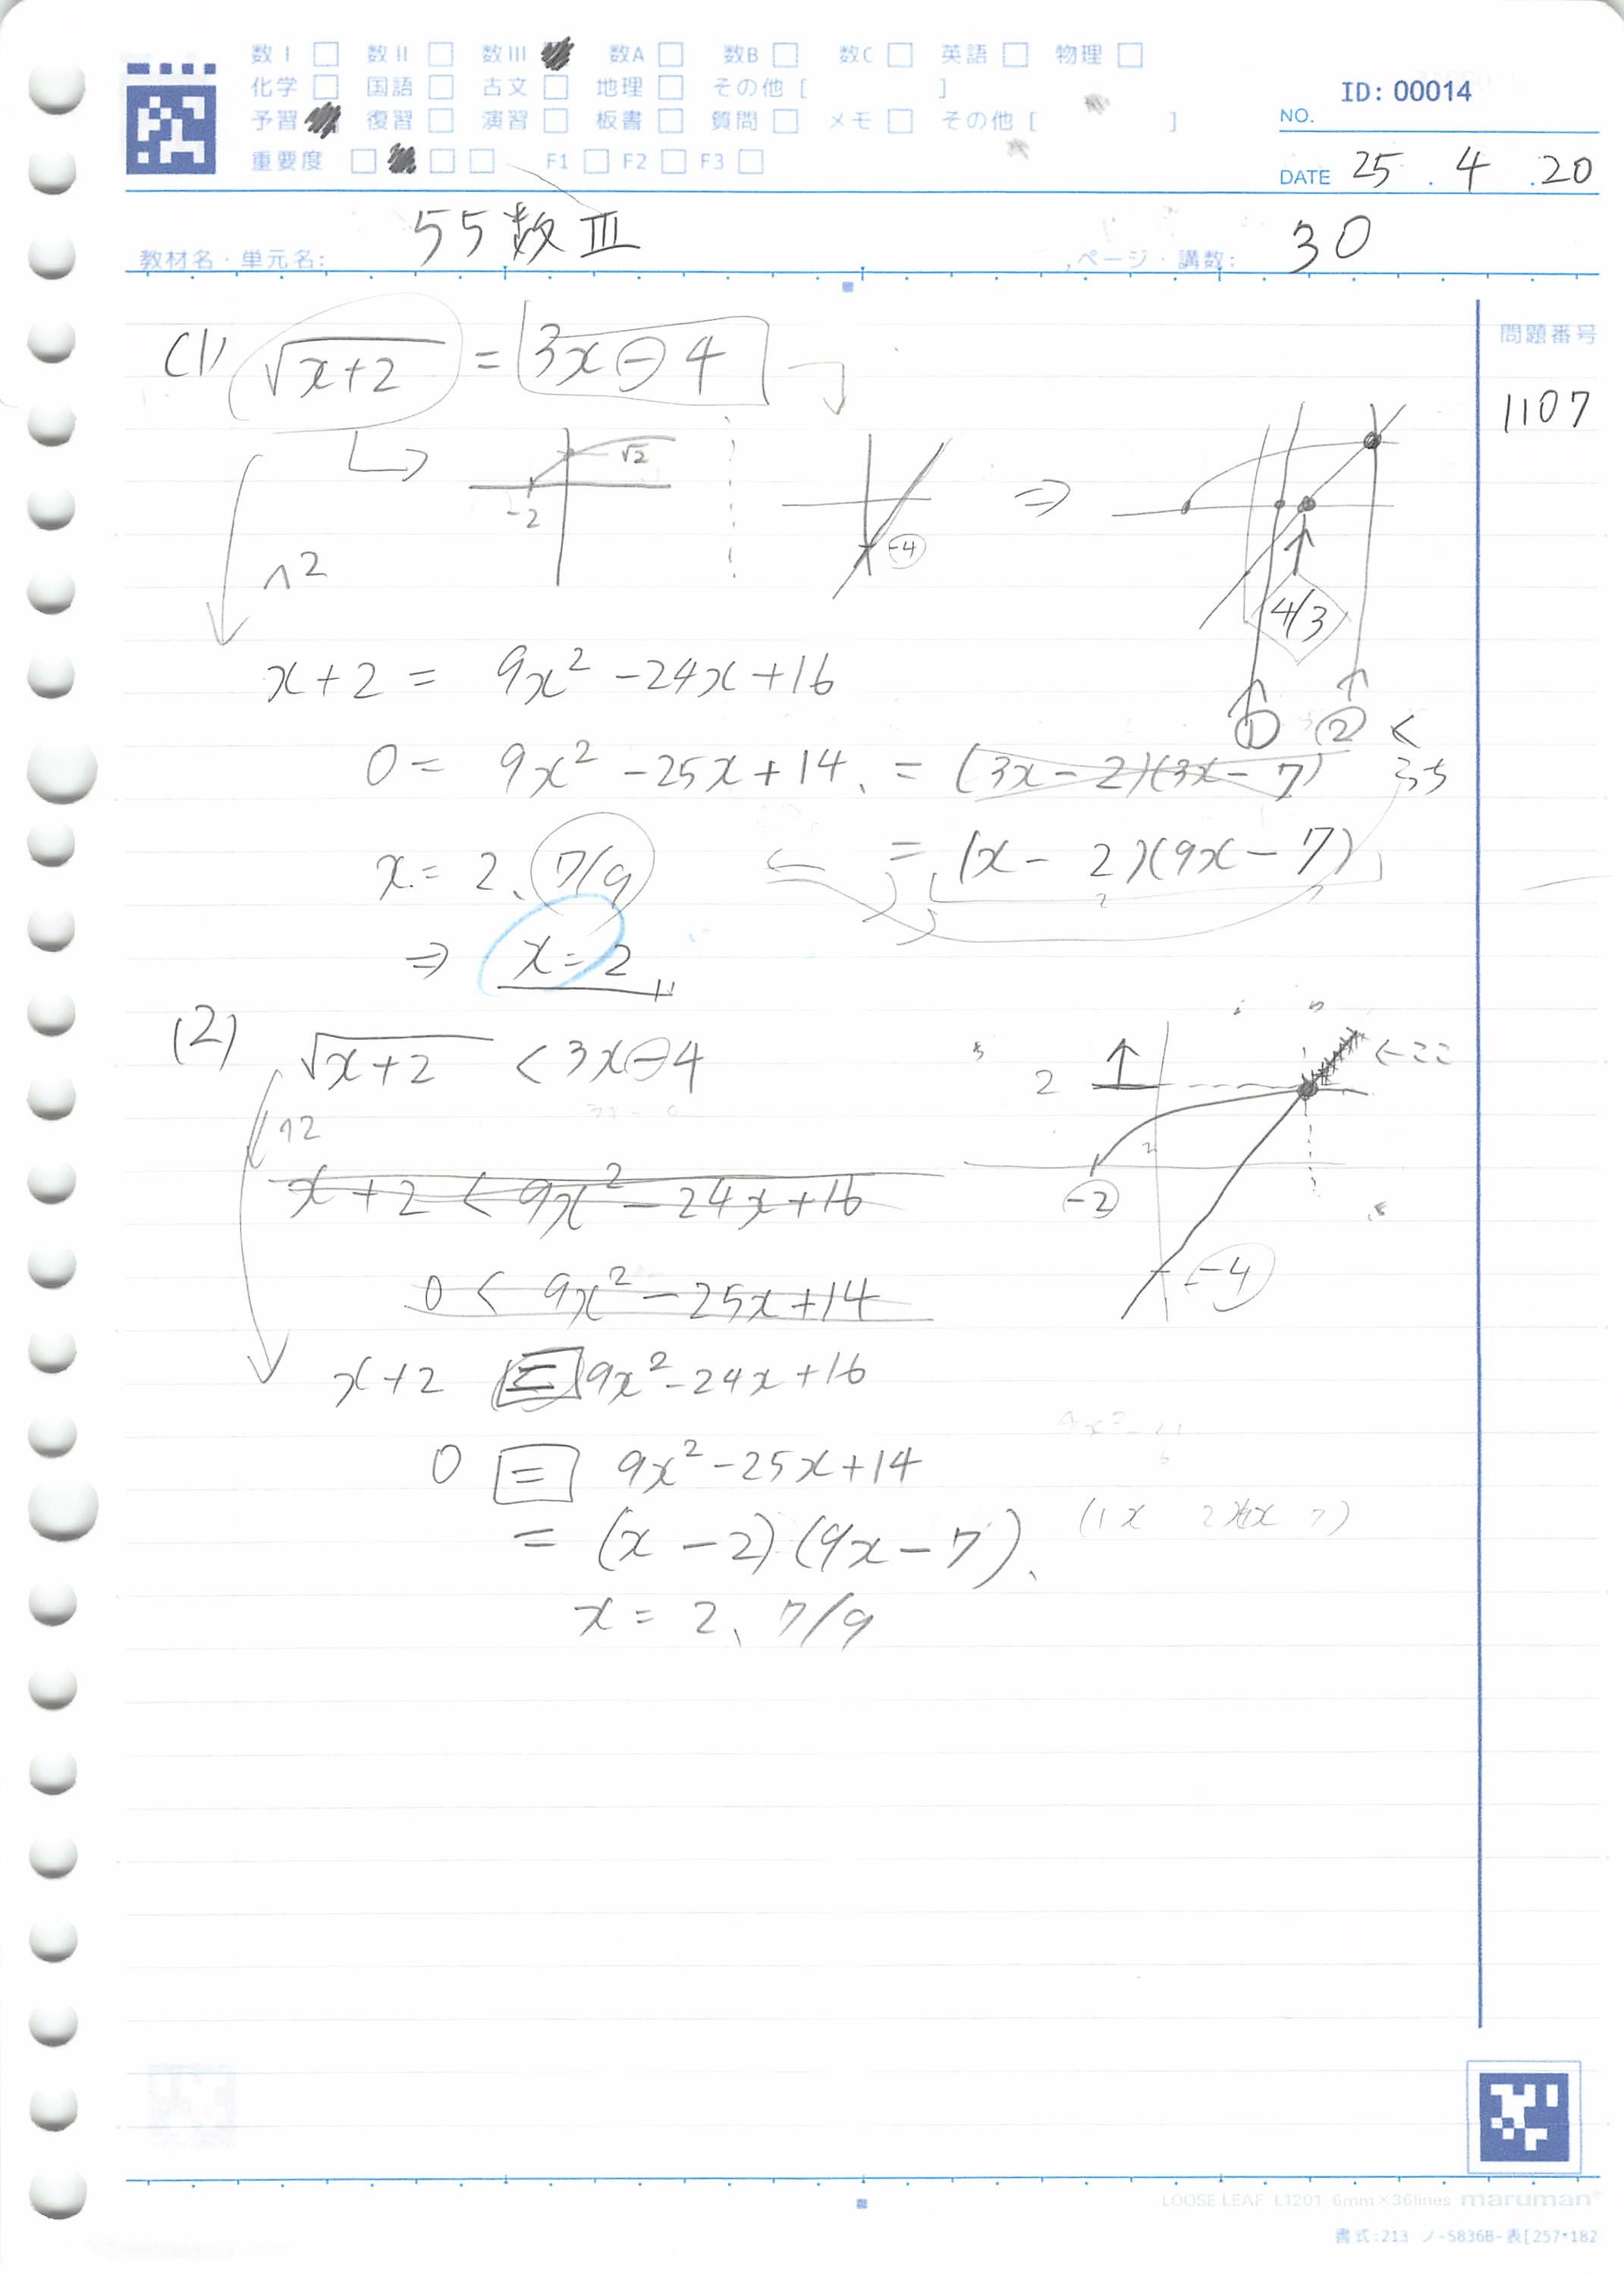 数I □ 数II □ 数III 数A □ 数B □ 数C □ 英語 □ 物理 □
化学 □ 国語 □ 古文 □ 地理 □ その他 [ ]
予習 復習 □ 演習 □ 板書 □ 質問 □ メモ □ その他 [ ]
重要度 □ □ □ F1 □ F2 □ F3 □
ID: 00014
NO.
DATE 25 . 4 . 20
教材名・単元名: 55数III
ページ・講数: 30
問題番号
1107
(1) √x+2 = 3x-4
-2 √2
-4
4/3
^2
① ②
x+2 = 9x² -24x+16
0 = 9x² -25x+14、 = (3x-2)(3x-7)
x = 2、7/9 = (x-2)(9x-7)
⇒ x=2
(2) √x+2 < 3x-4
^2
2 ←ここ
x+2 < 9x² -24x+16
-2
0 < 9x² -25x+14
-4
x+2 = 9x²-24x+16
0 = 9x²-25x+14
= (x-2)(9x-7)、
x = 2、7/9
LOOSE LEAF L1201 6mm×36lines maruman®
書式:213 ノ-S836B-表[257*182